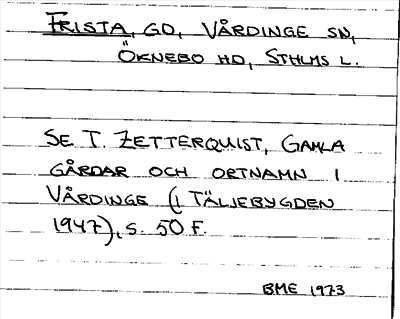 FRISTA, GD, VÅRDINGE SN,
ÖKNEBO HD, STHLMS L.
SE T. ZETTERQUIST, GAMLA
GÅRDAR OCH ORTNAMN I
VÅRDINGE (I TÄLJEBYGDEN
1947), S. 50 F.
BME 1973